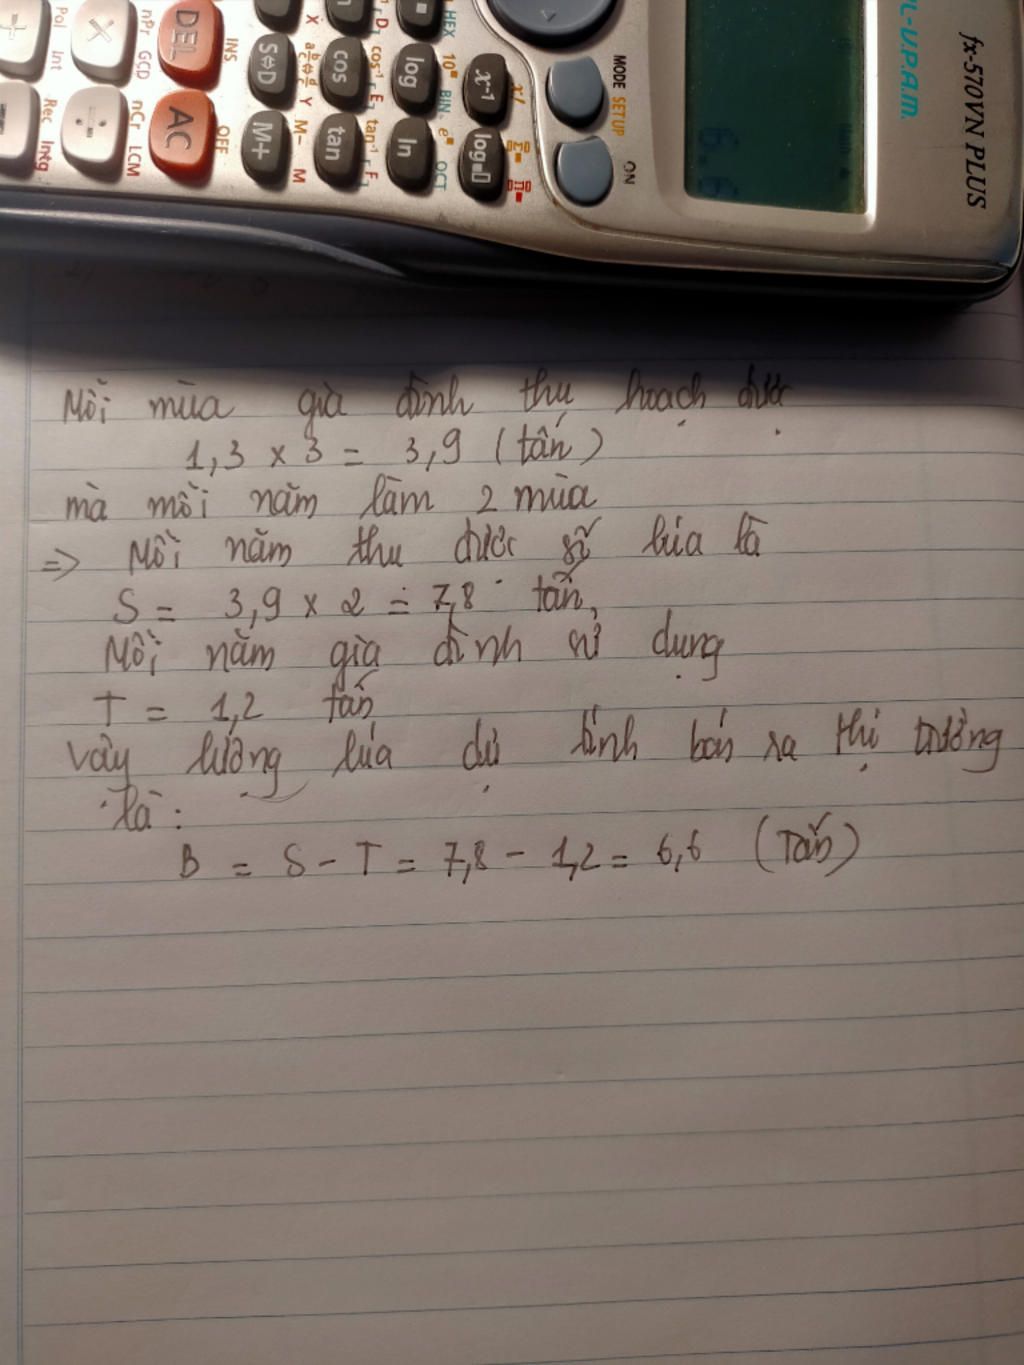 fx-570VN PLUS
VL-V.P.A.M.
MODE SETUP
ON
HEX
10■
BIN
e■
OCT
x⁻¹
log
log■□
ln
cos⁻¹
E
tan⁻¹
F
cos
tan
S⇔D
M+
Y
M−
M
X
D
INS
OFF
DEL
AC
nPr
GCD
nCr
LCM
×
÷
Pol
Int
Rec
Intg
Mỗi mùa gia đình thu hoạch được
1,3 × 3 = 3,9 (tấn)
mà mỗi năm làm 2 mùa
=> Mỗi năm thu được số lúa là
S = 3,9 × 2 = 7,8 tấn,
Mỗi năm gia đình sử dụng
T = 1,2 tấn
Vậy lượng lúa dự tính bán ra thị trường
là:
B = S - T = 7,8 - 1,2 = 6,6 (Tấn)